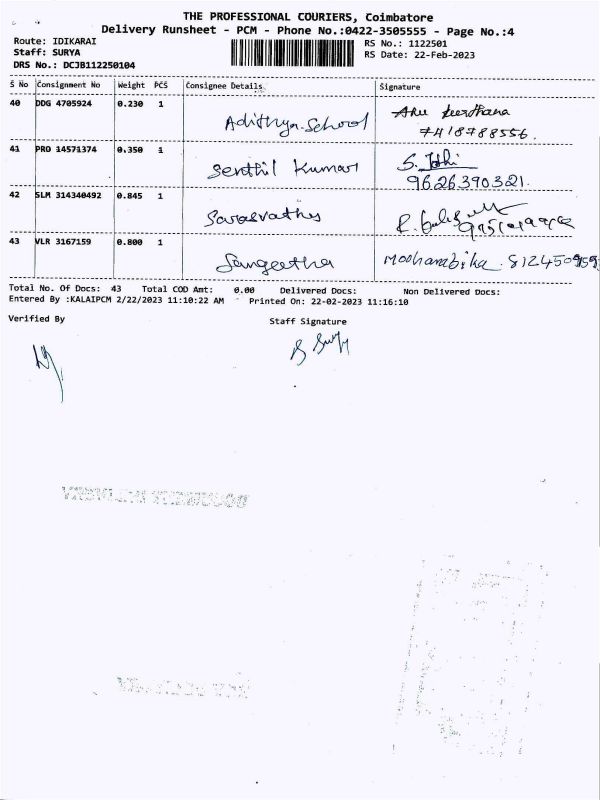 THE PROFESSIONAL COURIERS, Coimbatore
Delivery Runsheet - PCM - Phone No.:0422-3505555 - Page No.:4
Route: IDIKARAI
Staff: SURYA
DRS No.: DCJB112250104
RS No.: 1122501
RS Date: 22-Feb-2023
S No Consignment No Weight PCS Consignee Details Signature
40 DDG 4705924 0.230 1 Adithya School
7418788556.
41 PRO 14571374 0.350 1 Senthil Kumar S.
9626390321.
42 SLM 314340492 0.845 1 Sarasvathy
43 VLR 3167159 0.800 1 Sangeetha
Total No. Of Docs: 43 Total COD Amt: 0.00 Delivered Docs: Non Delivered Docs:
Entered By :KALAIPCM 2/22/2023 11:10:22 AM Printed On: 22-02-2023 11:16:10
Verified By Staff Signature